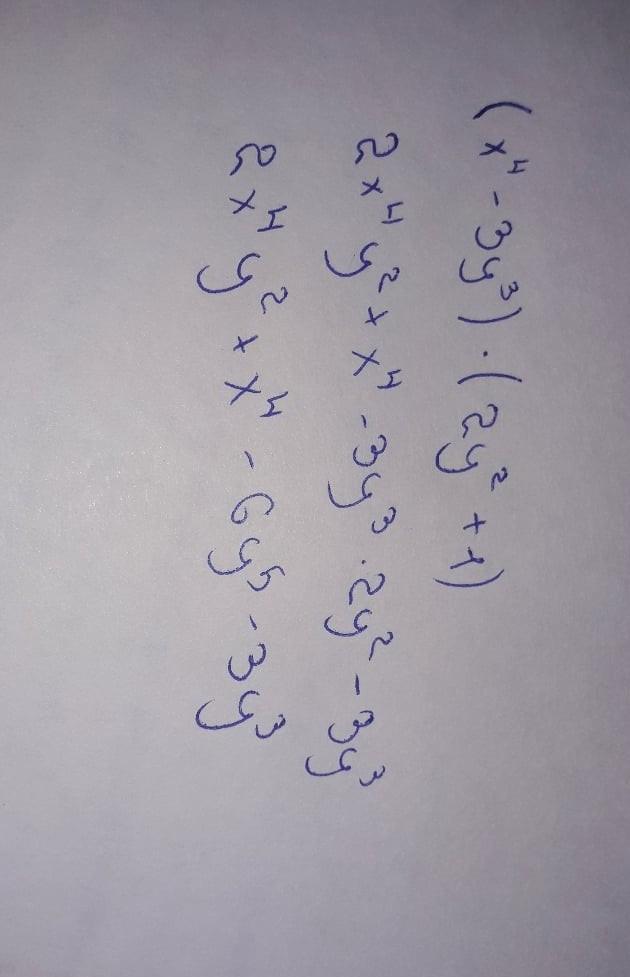 (x⁴ - 3y³) · (2y² + 1)
2x⁴y² + x⁴ - 3y³ · 2y² - 3y³
2x⁴y² + x⁴ - 6y⁵ - 3y³